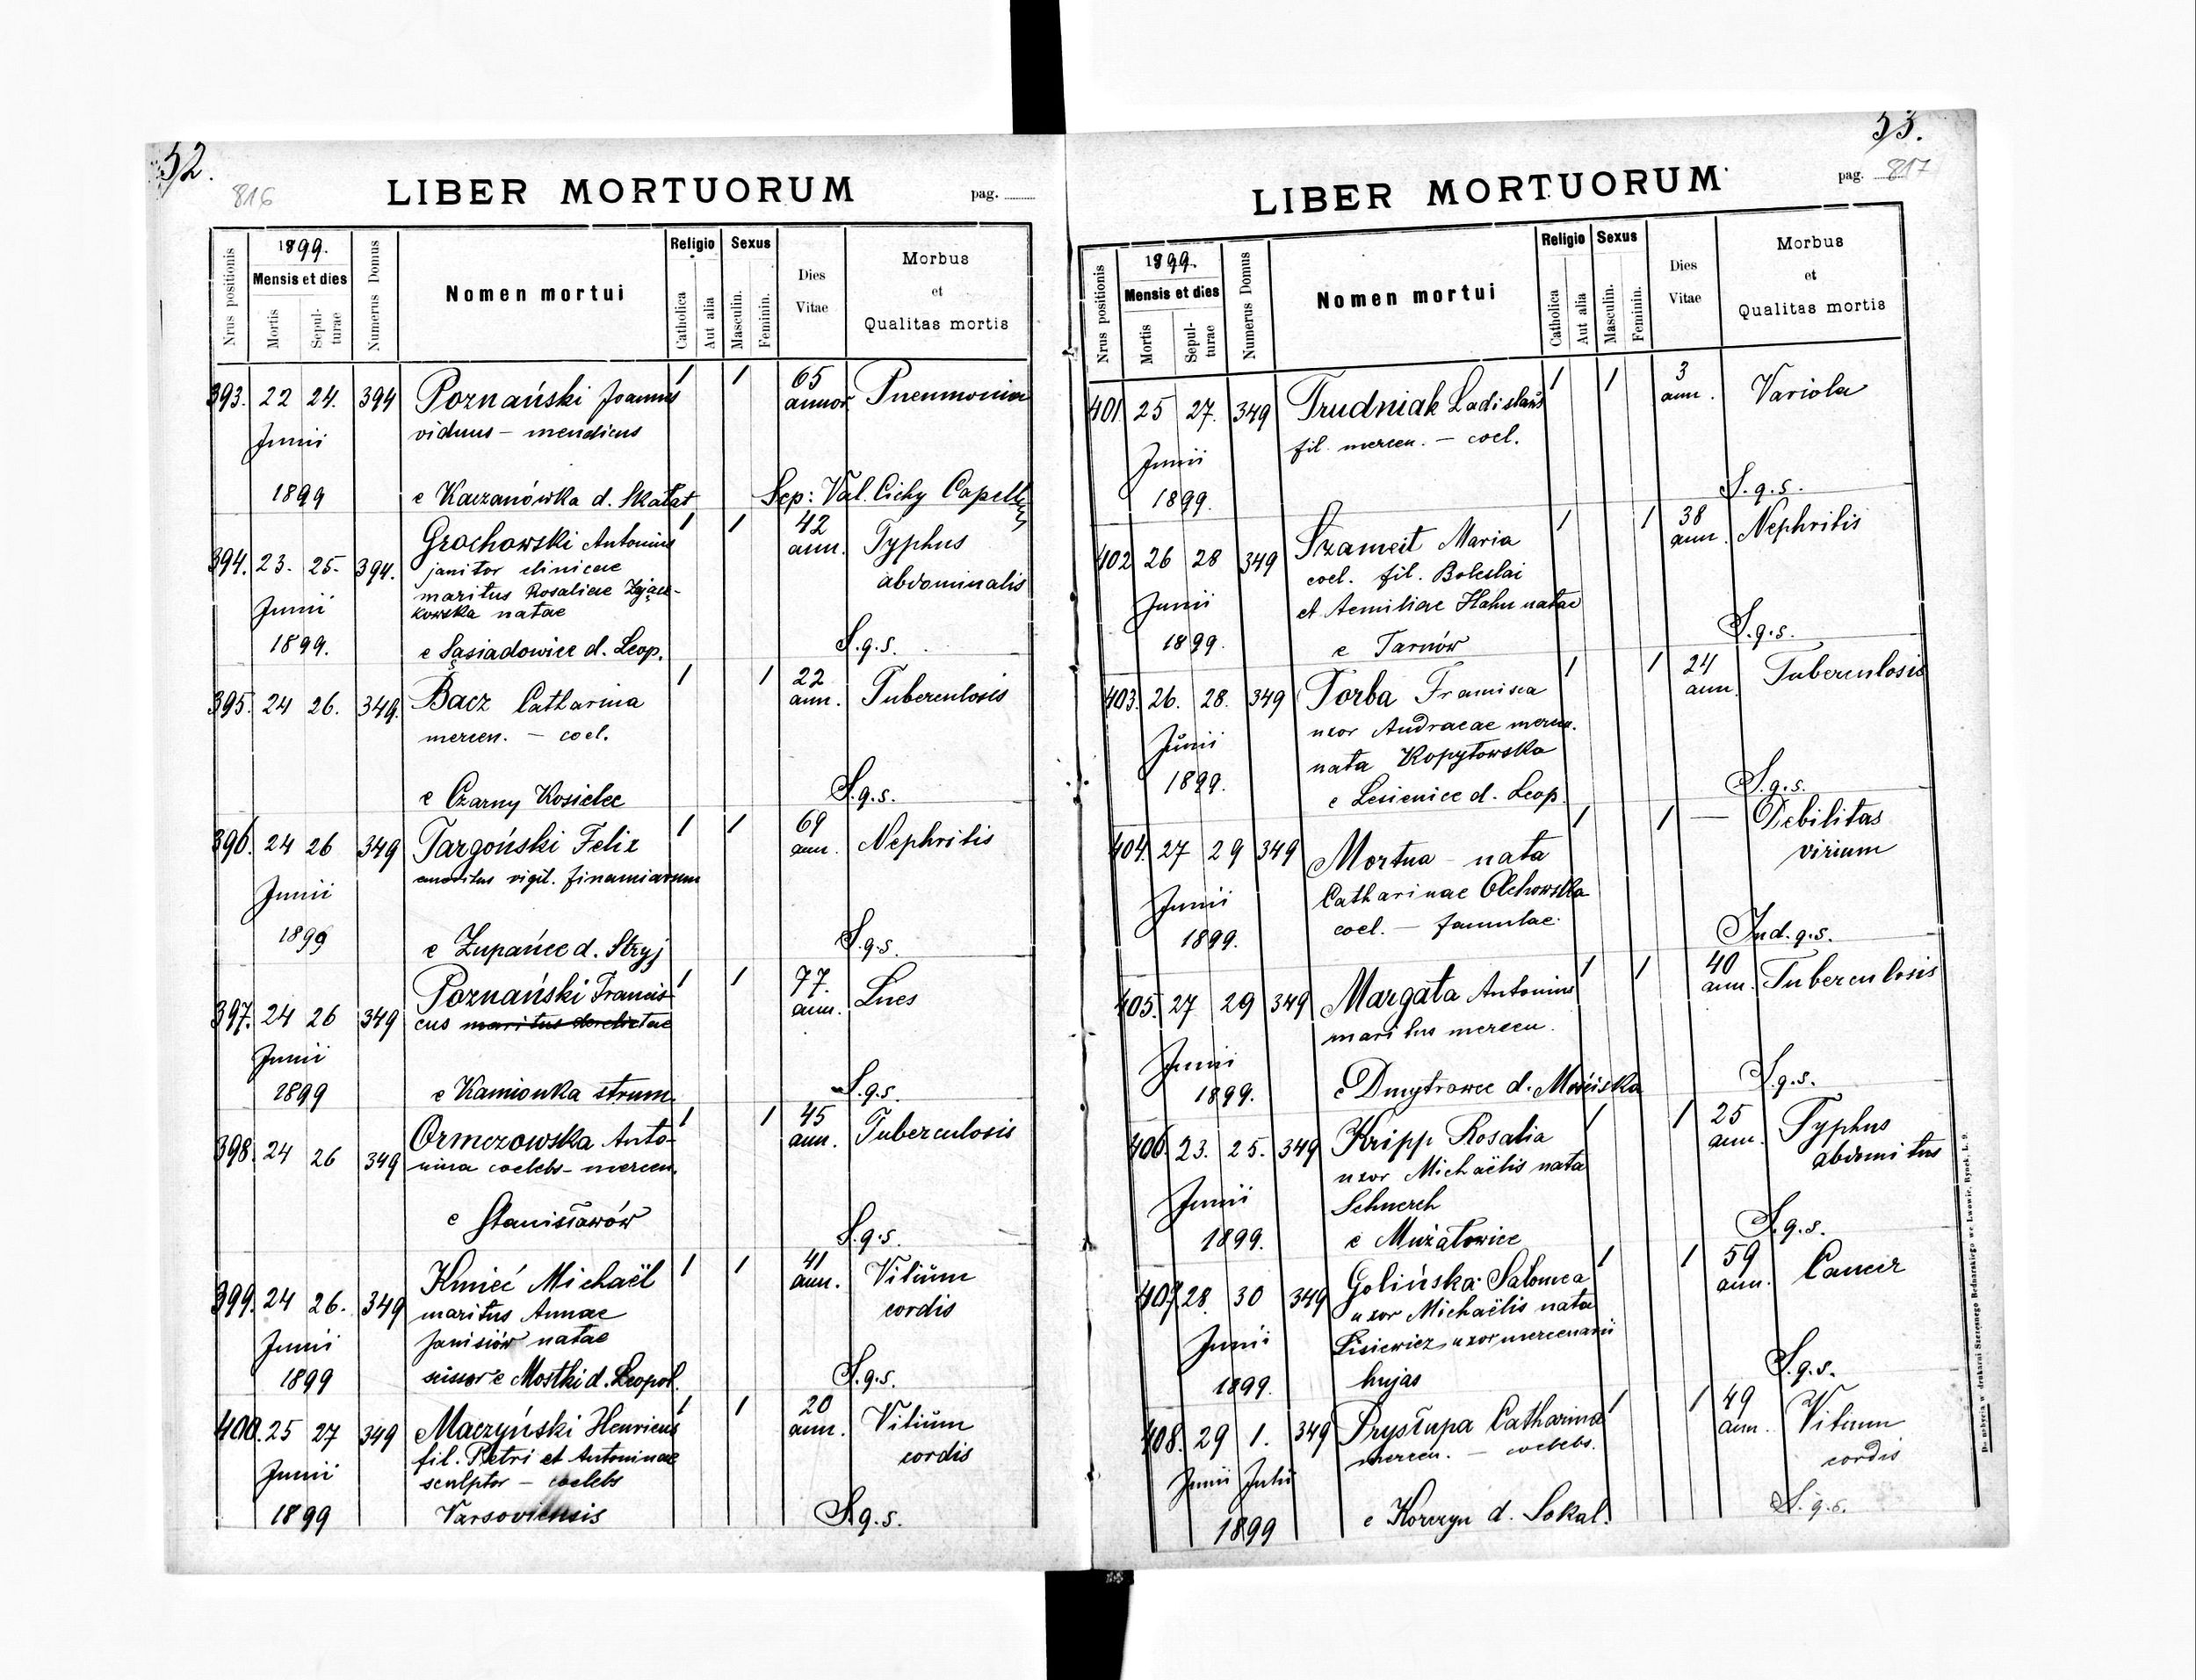 52.
816
LIBER MORTUORUM
pag.
Nrus positionis
1899.
Mensis et dies
Mortis
Sepul-
turae
Numerus Domus
Nomen mortui
Religio
Catholica
Aut alia
Sexus
Masculin.
Feminin.
Dies
Vitae
Morbus
et
Qualitas mortis
393. 22 24. 394 Poznański Joannes 1 1 65 annor. Pneumonia
viduus – mendicus
Junii
1899 e Kaczanówka d. Skałat Sep: Val. Cichy Capell
394. 23. 25. 394. Grochowski Antonius 1 1 42 ann. Typhus
janitor clinicae abdominalis
maritus Rosaliae Zając-
kowska natae
Junii
1899. e Sąsiadowice d. Leop. S.q.s.
395. 24 26. 349. Bacz Catharina 1 1 22 ann. Tuberculosis
mercen. – coel.
e Czarny Kosielec S.q.s.
396. 24 26 349 Targoński Felix 1 1 69 ann. Nephritis
emeritus vigil. financiarum
Junii
1899 e Żupańce d. Stryj S.q.s.
397. 24 26 349 Poznański Francis- 1 1 77. ann. Lues
cus maritus derelictae
Junii
1899 e Kamionka strum. S.q.s.
398. 24 26 349 Ormezowska Anto- 1 1 45 ann. Tuberculosis
nina coelebs – mercen.
e Stanisławów S.q.s.
399. 24 26. 349 Kmieć Michaël 1 1 41 ann. Vitium
maritus Annae cordis
Junii Janisiów natae
1899 e Mostki d. Leopol. S.q.s.
400. 25 27 349 Maczyński Henricus 1 1 20 ann. Vitium
fil. Petri et Antoninae cordis
Junii sculptor – coelebs
1899 Varsoviensis S.q.s.
53.
LIBER MORTUORUM
pag. 817
Nrus positionis
1899.
Mensis et dies
Mortis
Sepul-
turae
Numerus Domus
Nomen mortui
Religio
Catholica
Aut alia
Sexus
Masculin.
Feminin.
Dies
Vitae
Morbus
et
Qualitas mortis
401. 25 27. 349 Trudniak Ladislaus 1 1 3 ann. Variola
fil. mercen. – coel.
Junii
1899. S.q.s.
402 26 28 349 Szameit Maria 1 1 38 ann. Nephritis
coel. fil. Boleslai
Junii et Aemiliae Hahn natae
1899. e Tarnów S.q.s.
403. 26. 28. 349 Torba Francisca 1 1 24 ann. Tuberculosis
uxor Andraeae mercen.
Junii nata Kopytowska
1899. e Lesienice d. Leop. S.q.s.
404. 27 29 349 Mortua – nata 1 1 — Debilitas
Catharinae Olchowska virium
Junii coel. – famulae
1899. Ind.q.s.
405. 27 29 349 Margata Antonius 1 1 40 ann. Tuberculosis
maritus mercen.
Junii
1899. e Dmytrowce d. Mościska S.q.s.
406. 23. 25. 349 Kripp Rosalia 1 1 25 ann. Typhus
uxor Michaëlis nata
Junii Schnerch
1899. e Mużałowice S.q.s.
407. 28. 30 349 Golińska Salomea 1 1 59 ann. Cancer
uxor Michaëlis nata
Junii Lisiewicz uxor mercenarii
1899. hujas S.q.s.
408. 29 1. 349 Prystupa Catharina 1 1 49 ann. Vitium
mercen. – coelebs. cordis
Junii Julii
1899 e Korczyn d. Sokal. S.q.s.
Do nabycia w drukarni Szczęsnego Bednarskiego we Lwowie, Rynek, L. 9.